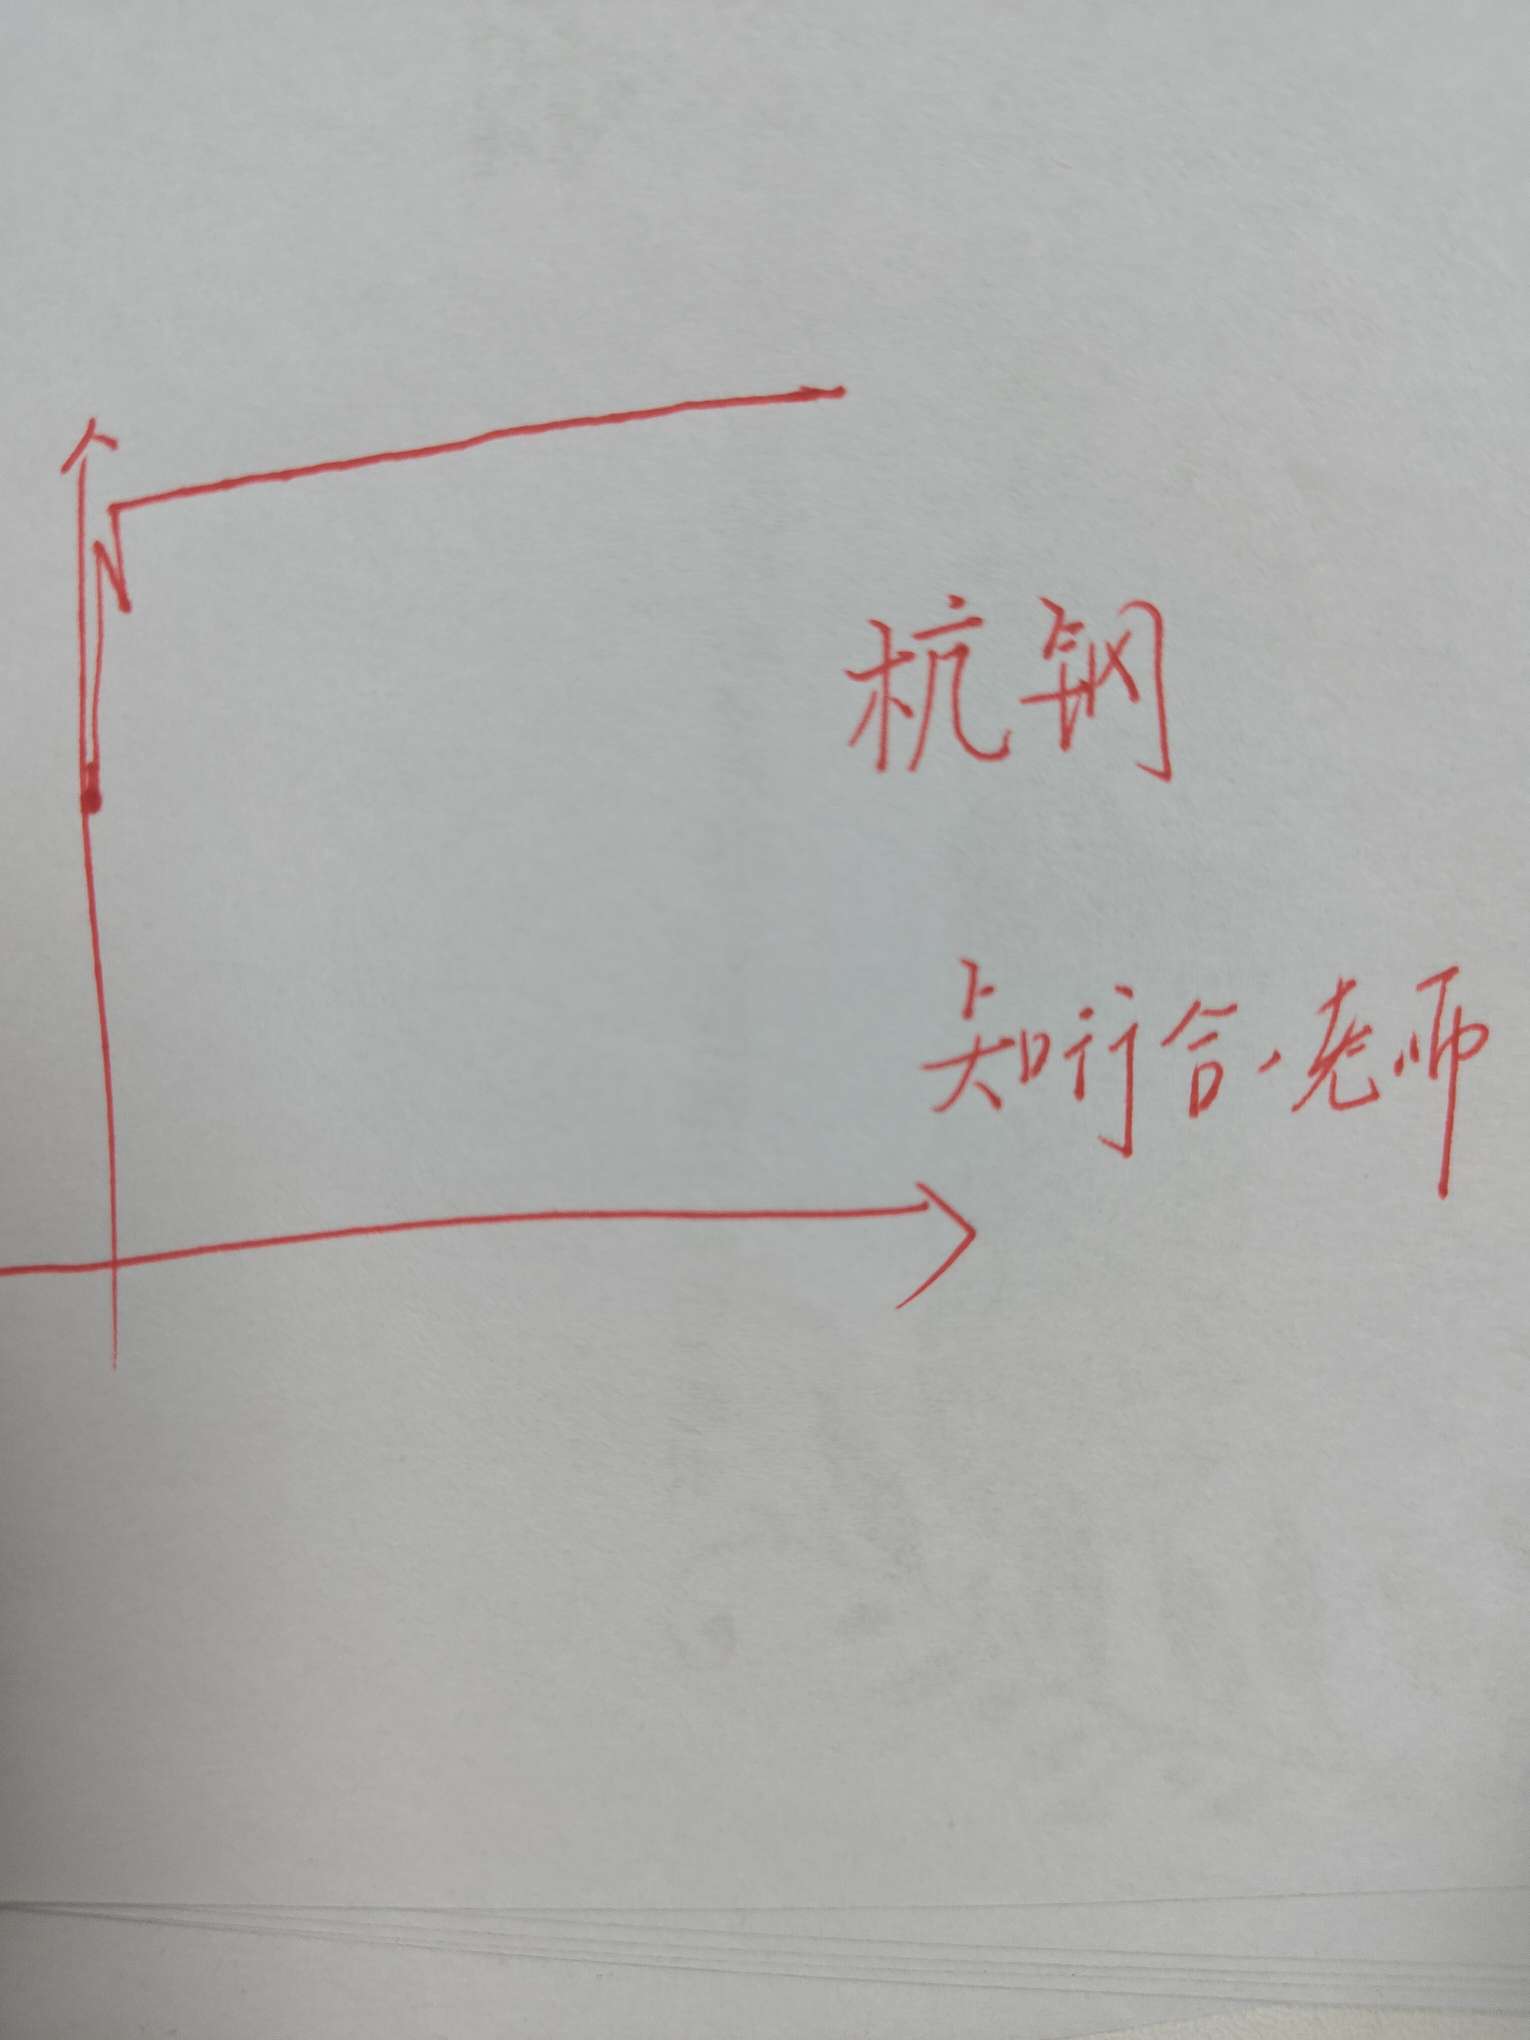 杭钢
知行合·老师